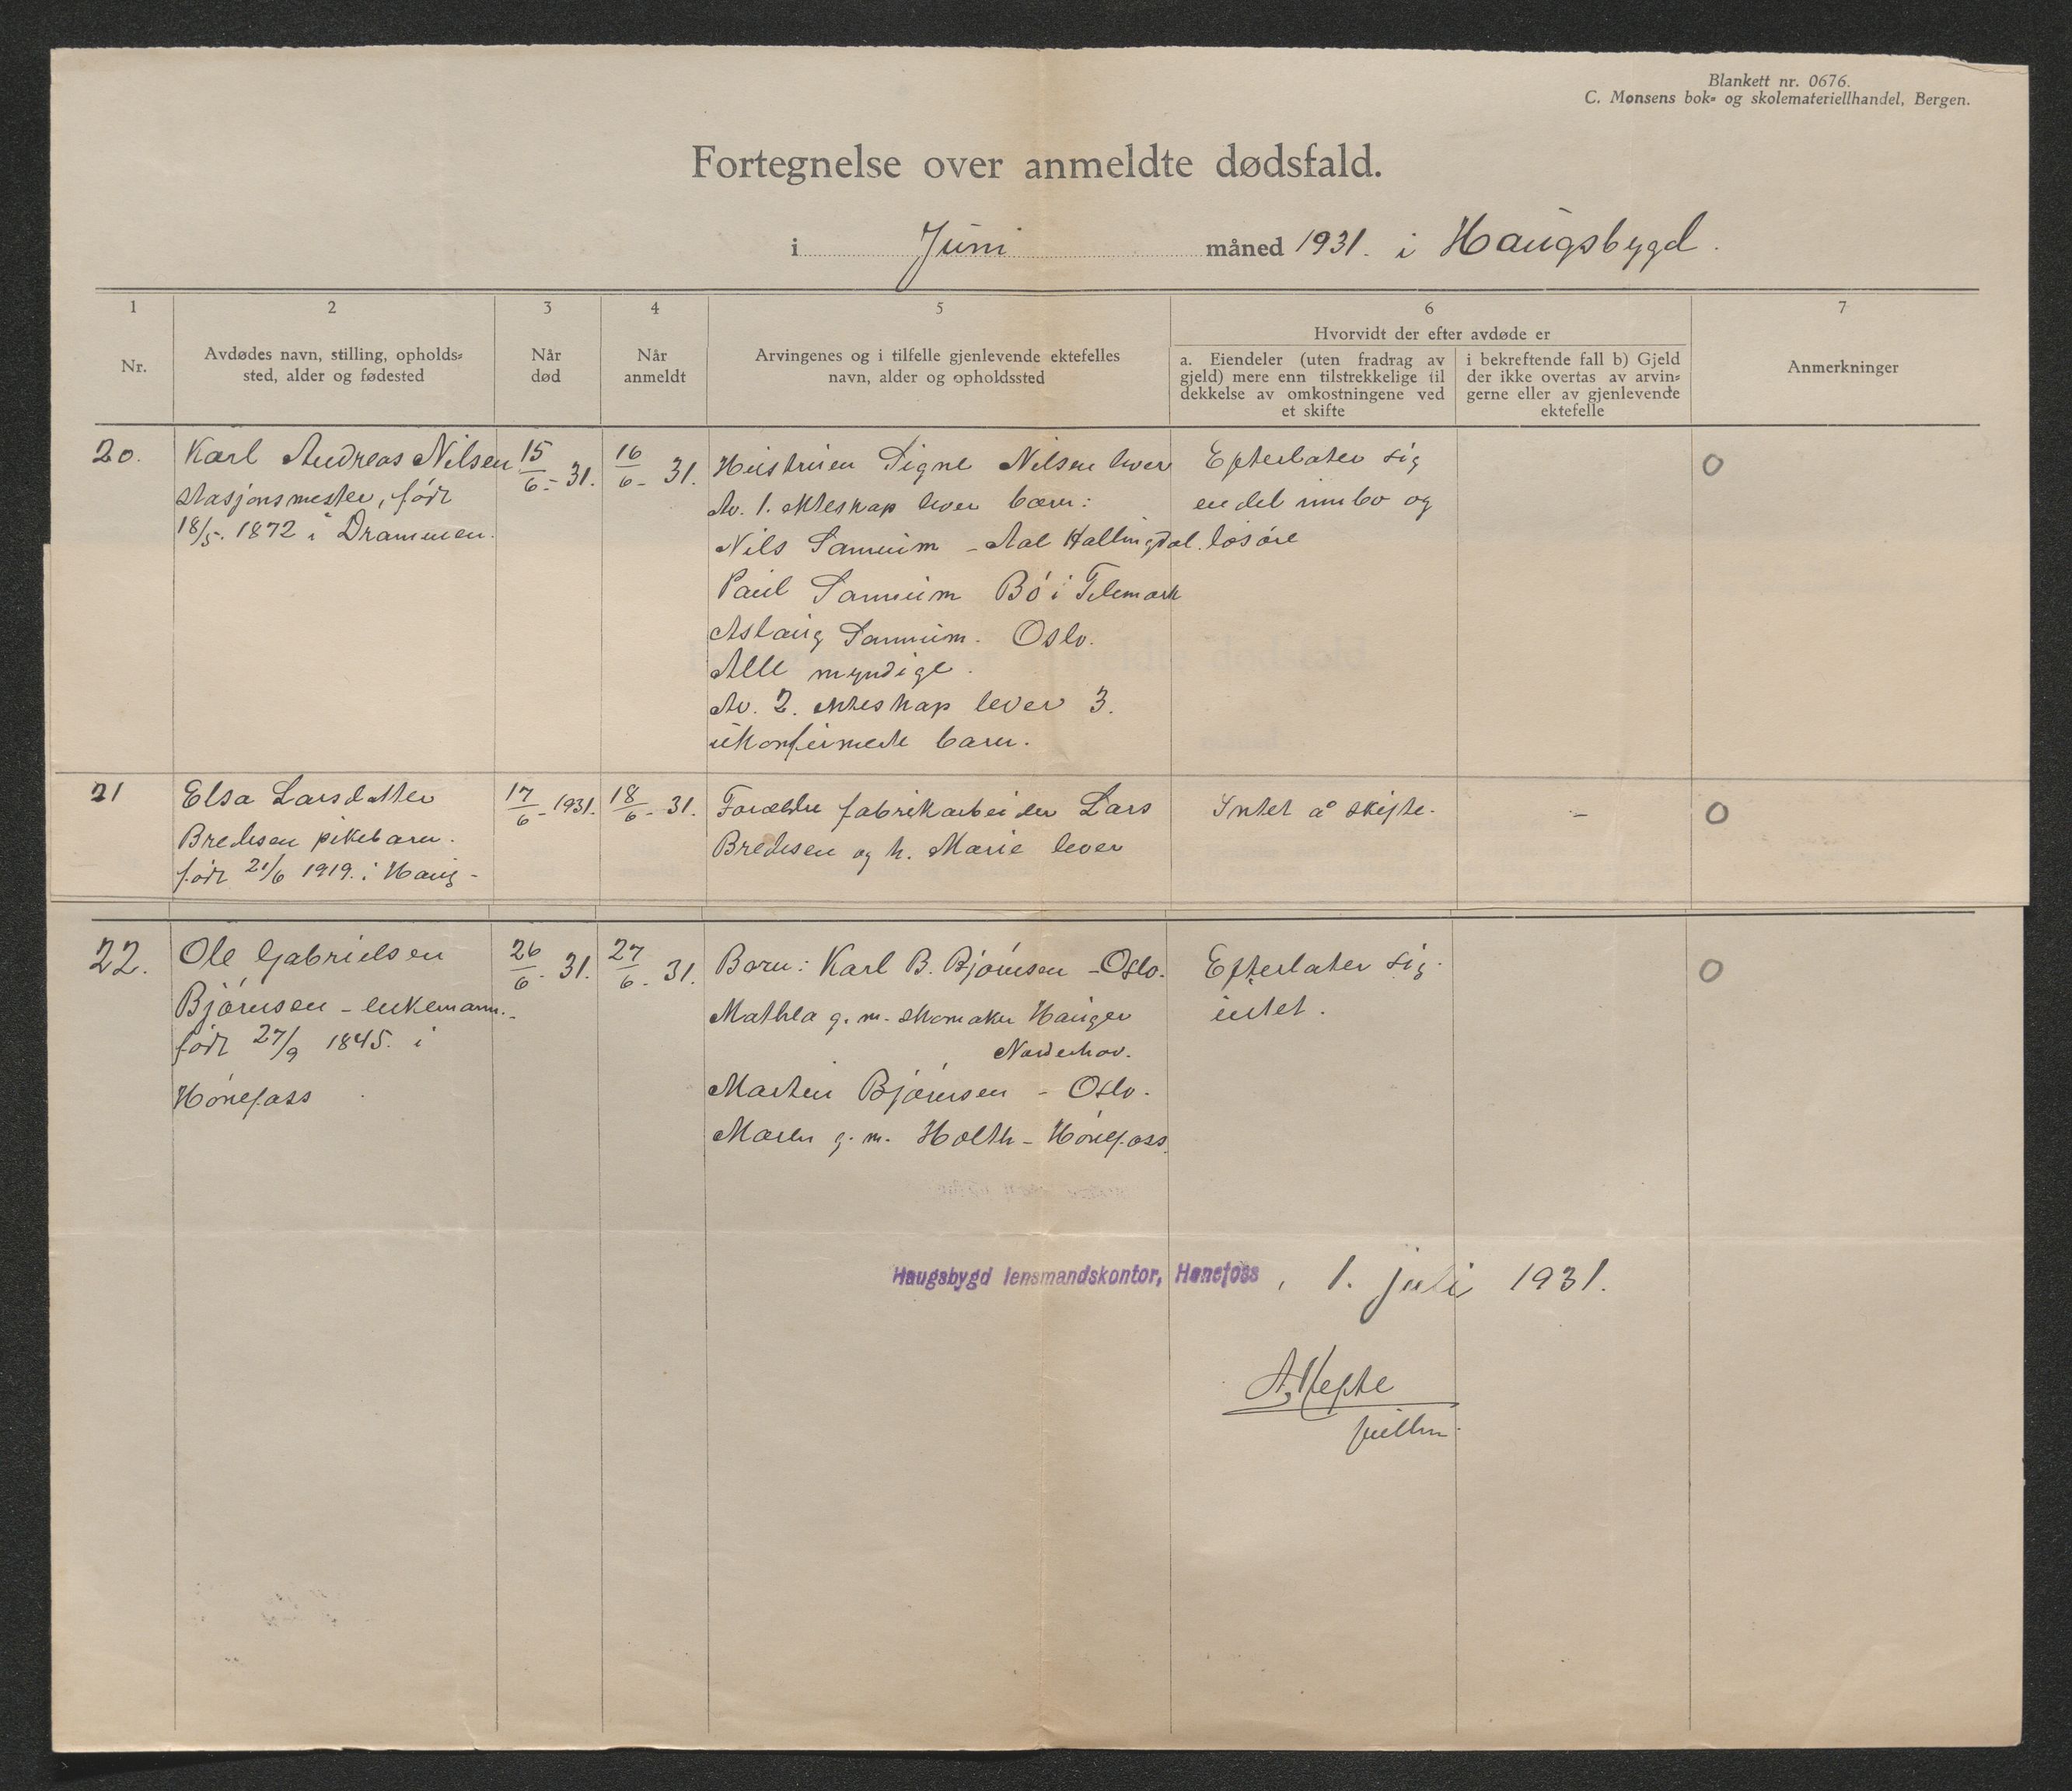 Blankett nr. 0676.
C. Monsens bok- og skolemateriellhandel, Bergen.
Fortegnelse over anmeldte dødsfald.
i Juni måned 1931. i Haugsbygd.
1 2 3 4 5 6 7
Nr.
Avdødes navn, stilling, opholds-
sted, alder og fødested
Når
død
Når
anmeldt
Arvingenes og i tilfelle gjenlevende ektefelles
navn, alder og opholdssted
Hvorvidt der efter avdøde er
a. Eiendeler (uten fradrag av
gjeld) mere enn tilstrekkelige til
dekkelse av omkostningene ved
et skifte
i bekreftende fall b) Gjeld
der ikke overtas av arvin-
gerne eller av gjenlevende
ektefelle
Anmerkninger
20.
Karl Andreas Nilsen
stasjonsmester, født
18/5. 1872 i Drammen.
15/6 - 31.
16/6 - 31.
Hustruen Signe Nilsen lever
Av. 1. ekteskap lever barn:
Nils Sannum - Aal Hallingdal.
Paul Sannum Bö i Telemark
Aslaug Sannum. Oslo.
Alle myndige.
Av. 2. ekteskap lever 3.
ukonfirmerte barn.
Efterlater sig
endel innbo og
løsøre
0
21
Elsa Larsdatter
Bredesen pikebarn.
født 21/6 1919. i Haug-
17/6 - 1931.
18/6 - 31.
Forældre fabrikarbeider Lars
Bredesen og h. Marie lever
Intet å skifte.
-
0
22.
Ole Gabrielsen
Bjórnsen - enkemann.
født 27/9 1845. i
Hónefoss
26/6 - 31.
27/6 - 31.
Barn: Karl B. Bjórnsen - Oslo.
Mathea g. m. skomaker Hauger
Norderhov.
Marten Bjórnsen - Oslo.
Maren g. m. Holth - Hónefoss.
Efterlater sig
intet.
0
Haugsbygd lensmandskontor, Hønefoss, 1. juli 1931.